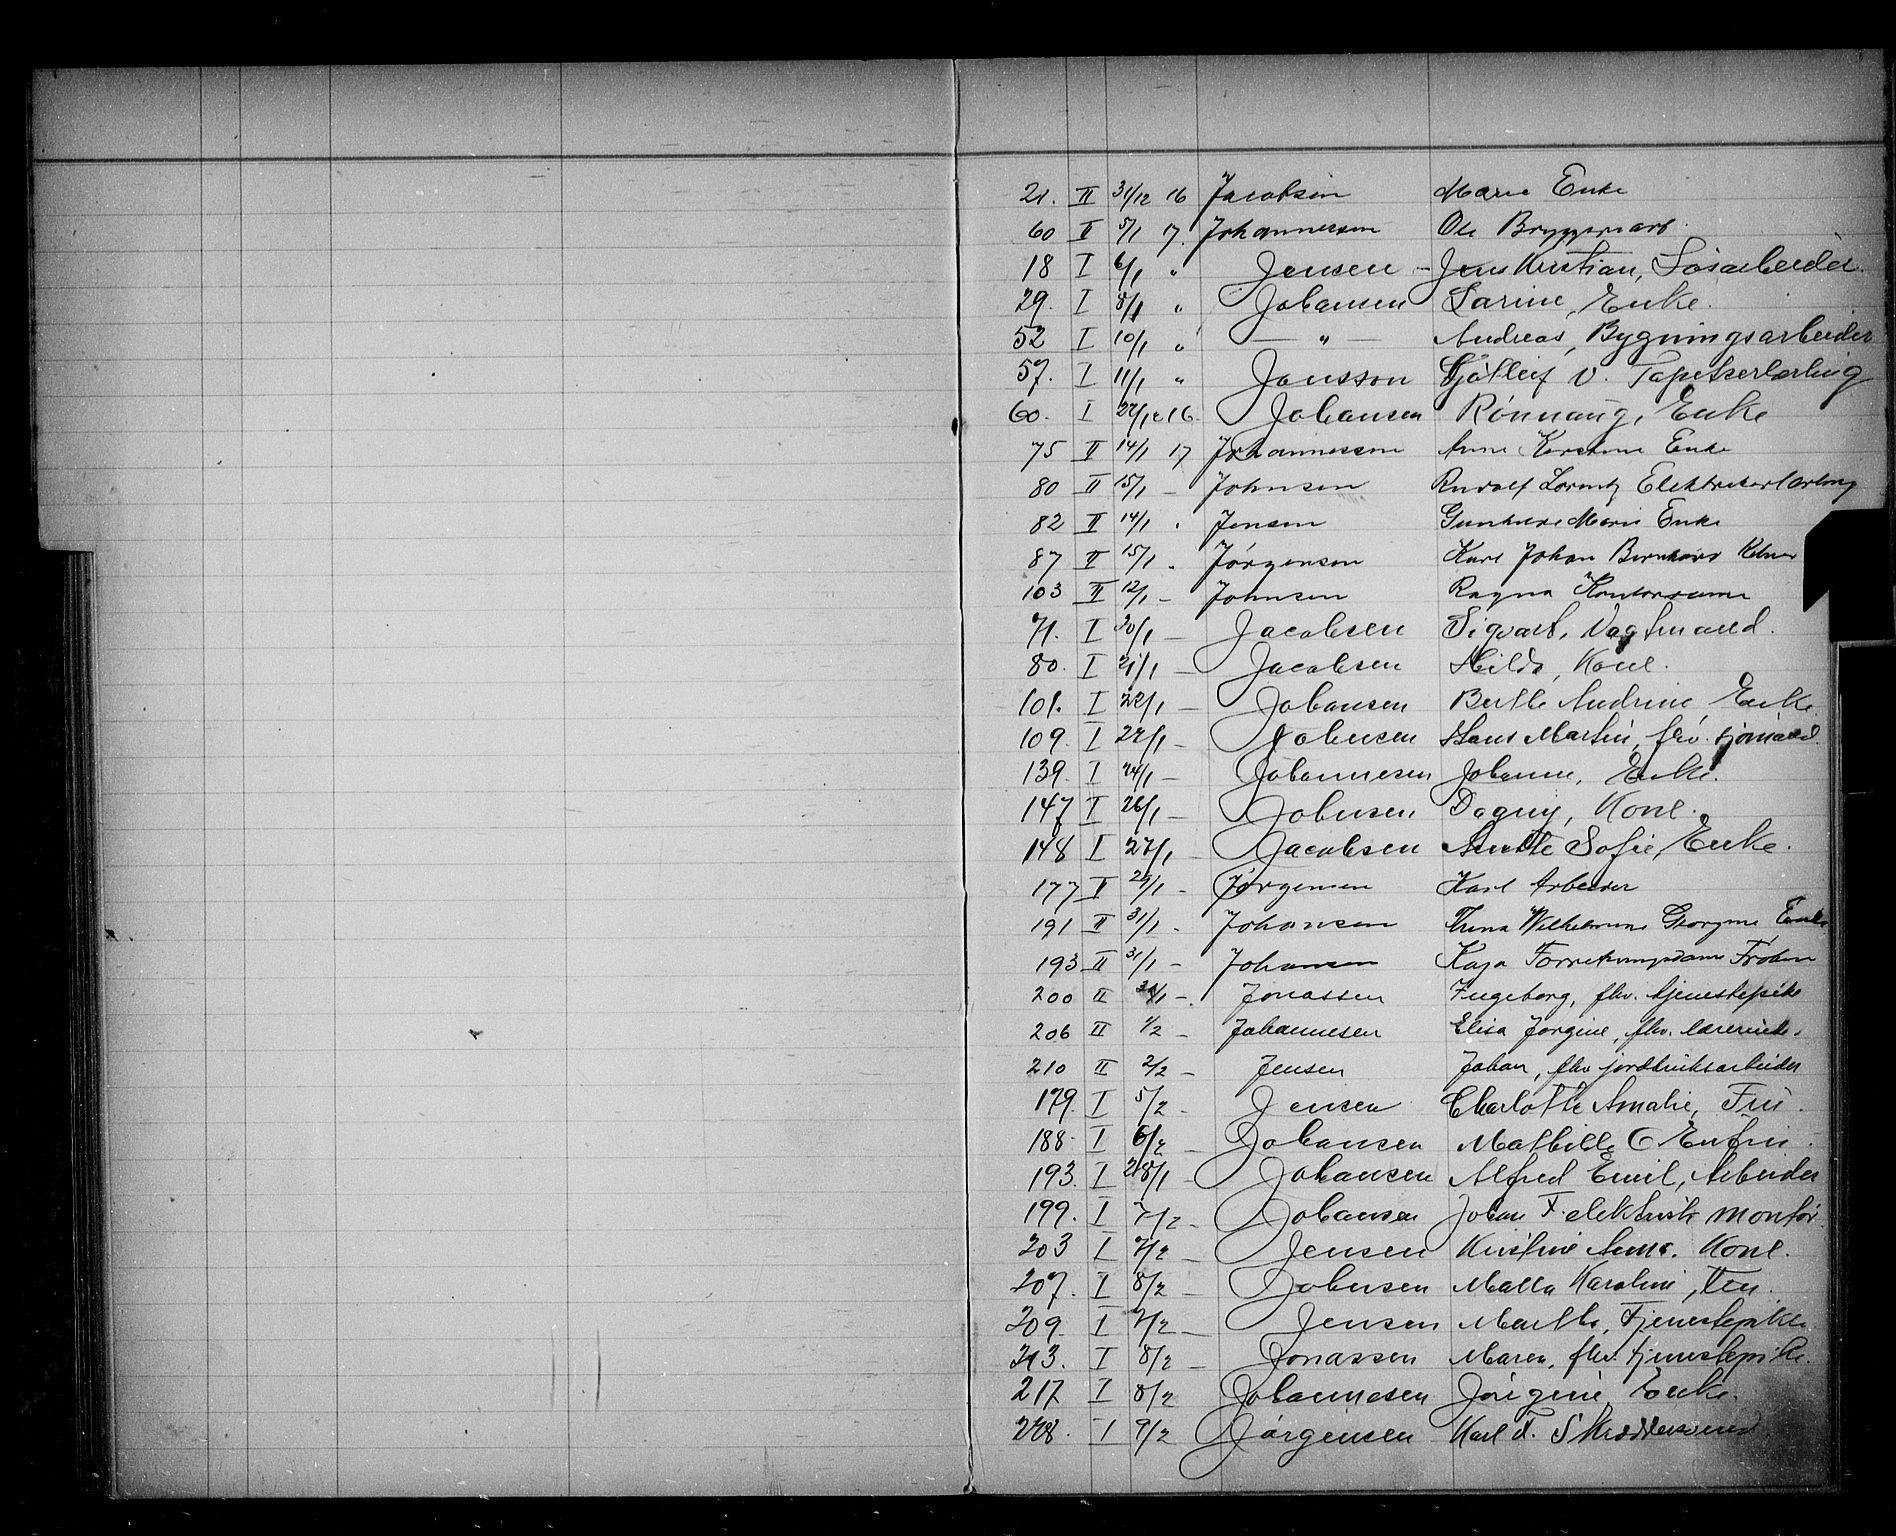 21. II 31/12 16 Jacobsen Marie Enke
60 II 5/1 17. Johannessen Ole Bryggearb.
18 I 6/1 " Jensen - Jens Kristian, Løsarbeider.
29. I 8/1 " Johansen Sarine, Enke.
52 I 10/1 " — " — Andreas, Bygningsarbeider
57. I 11/1 " Jansson V. Tapetserlærling
60. I 27/12 16. Johansen Rønnaug, Enke
75 II 14/1 17 Johannessen Anne Kirstine Enke
80 II 15/1 - Johnsen Rudolf Lorentz Elektrikerlærling
82 II 14/1 . Jensen Gunhilde Marie Enke
87 II 15/1 . Jørgensen Karl Johan Bernhard Kelner
103 II 12/1 - Johnsen Ragna Kontordame
71. I 20/1 - Jacobsen Sigvart, Vagtmand.
80. I 21/1 - Jacobsen Hilda, Kone.
101. I 22/1 - Johansen Berthe Andrine Enke.
109. I 22/1 - Johnsen Hans Martin, fhv. sjømand.
139. I 24/1 - Johannesen Johanne, Enke.
147 I 26/1 - Johnsen Dagny, Kone.
148 I 27/1 - Jacobsen Anette Sofie, Enke.
177 II 29/1 - Jørgensen Karl Arbeider
191 II 31/1 - Johansen Thina Wilhelmine Georgine Enke
193 II 31/1 - Johansen Kaja Forretningsdame Frøken
200 II 31/1 - Jonassen Ingeborg, fhv. tjenestepike
206 II 1/2 - Johannesen Elisa Jørgine, fhv. lærerinde.
210 II 2/2 - Jensen Johan, fhv jordbruksarbeider
179. I 5/2 - Jensen Charlotte Amalie, Fru.
188 I 6/2 - Johansen Mathilde C Enkefru.
193. I 28/1 - Johansen Alfred Emil, Arbeider
199. I 7/2 - Johansen Johan F. elektrisk montør.
203 I 7/2 - Jensen Kristine Anna. Kone.
207. I 8/2 - Johnsen Malla Karoline, Fru.
209. I 7/2 - Jensen Marthe, Tjenestepike.
213. I 8/2 - Jonassen Maren, fhv. tjenestepike.
217 I 8/2 Johannesen Jørgine, Enke.
228. I 9/2 Jørgensen Karl F. Skræddersvend